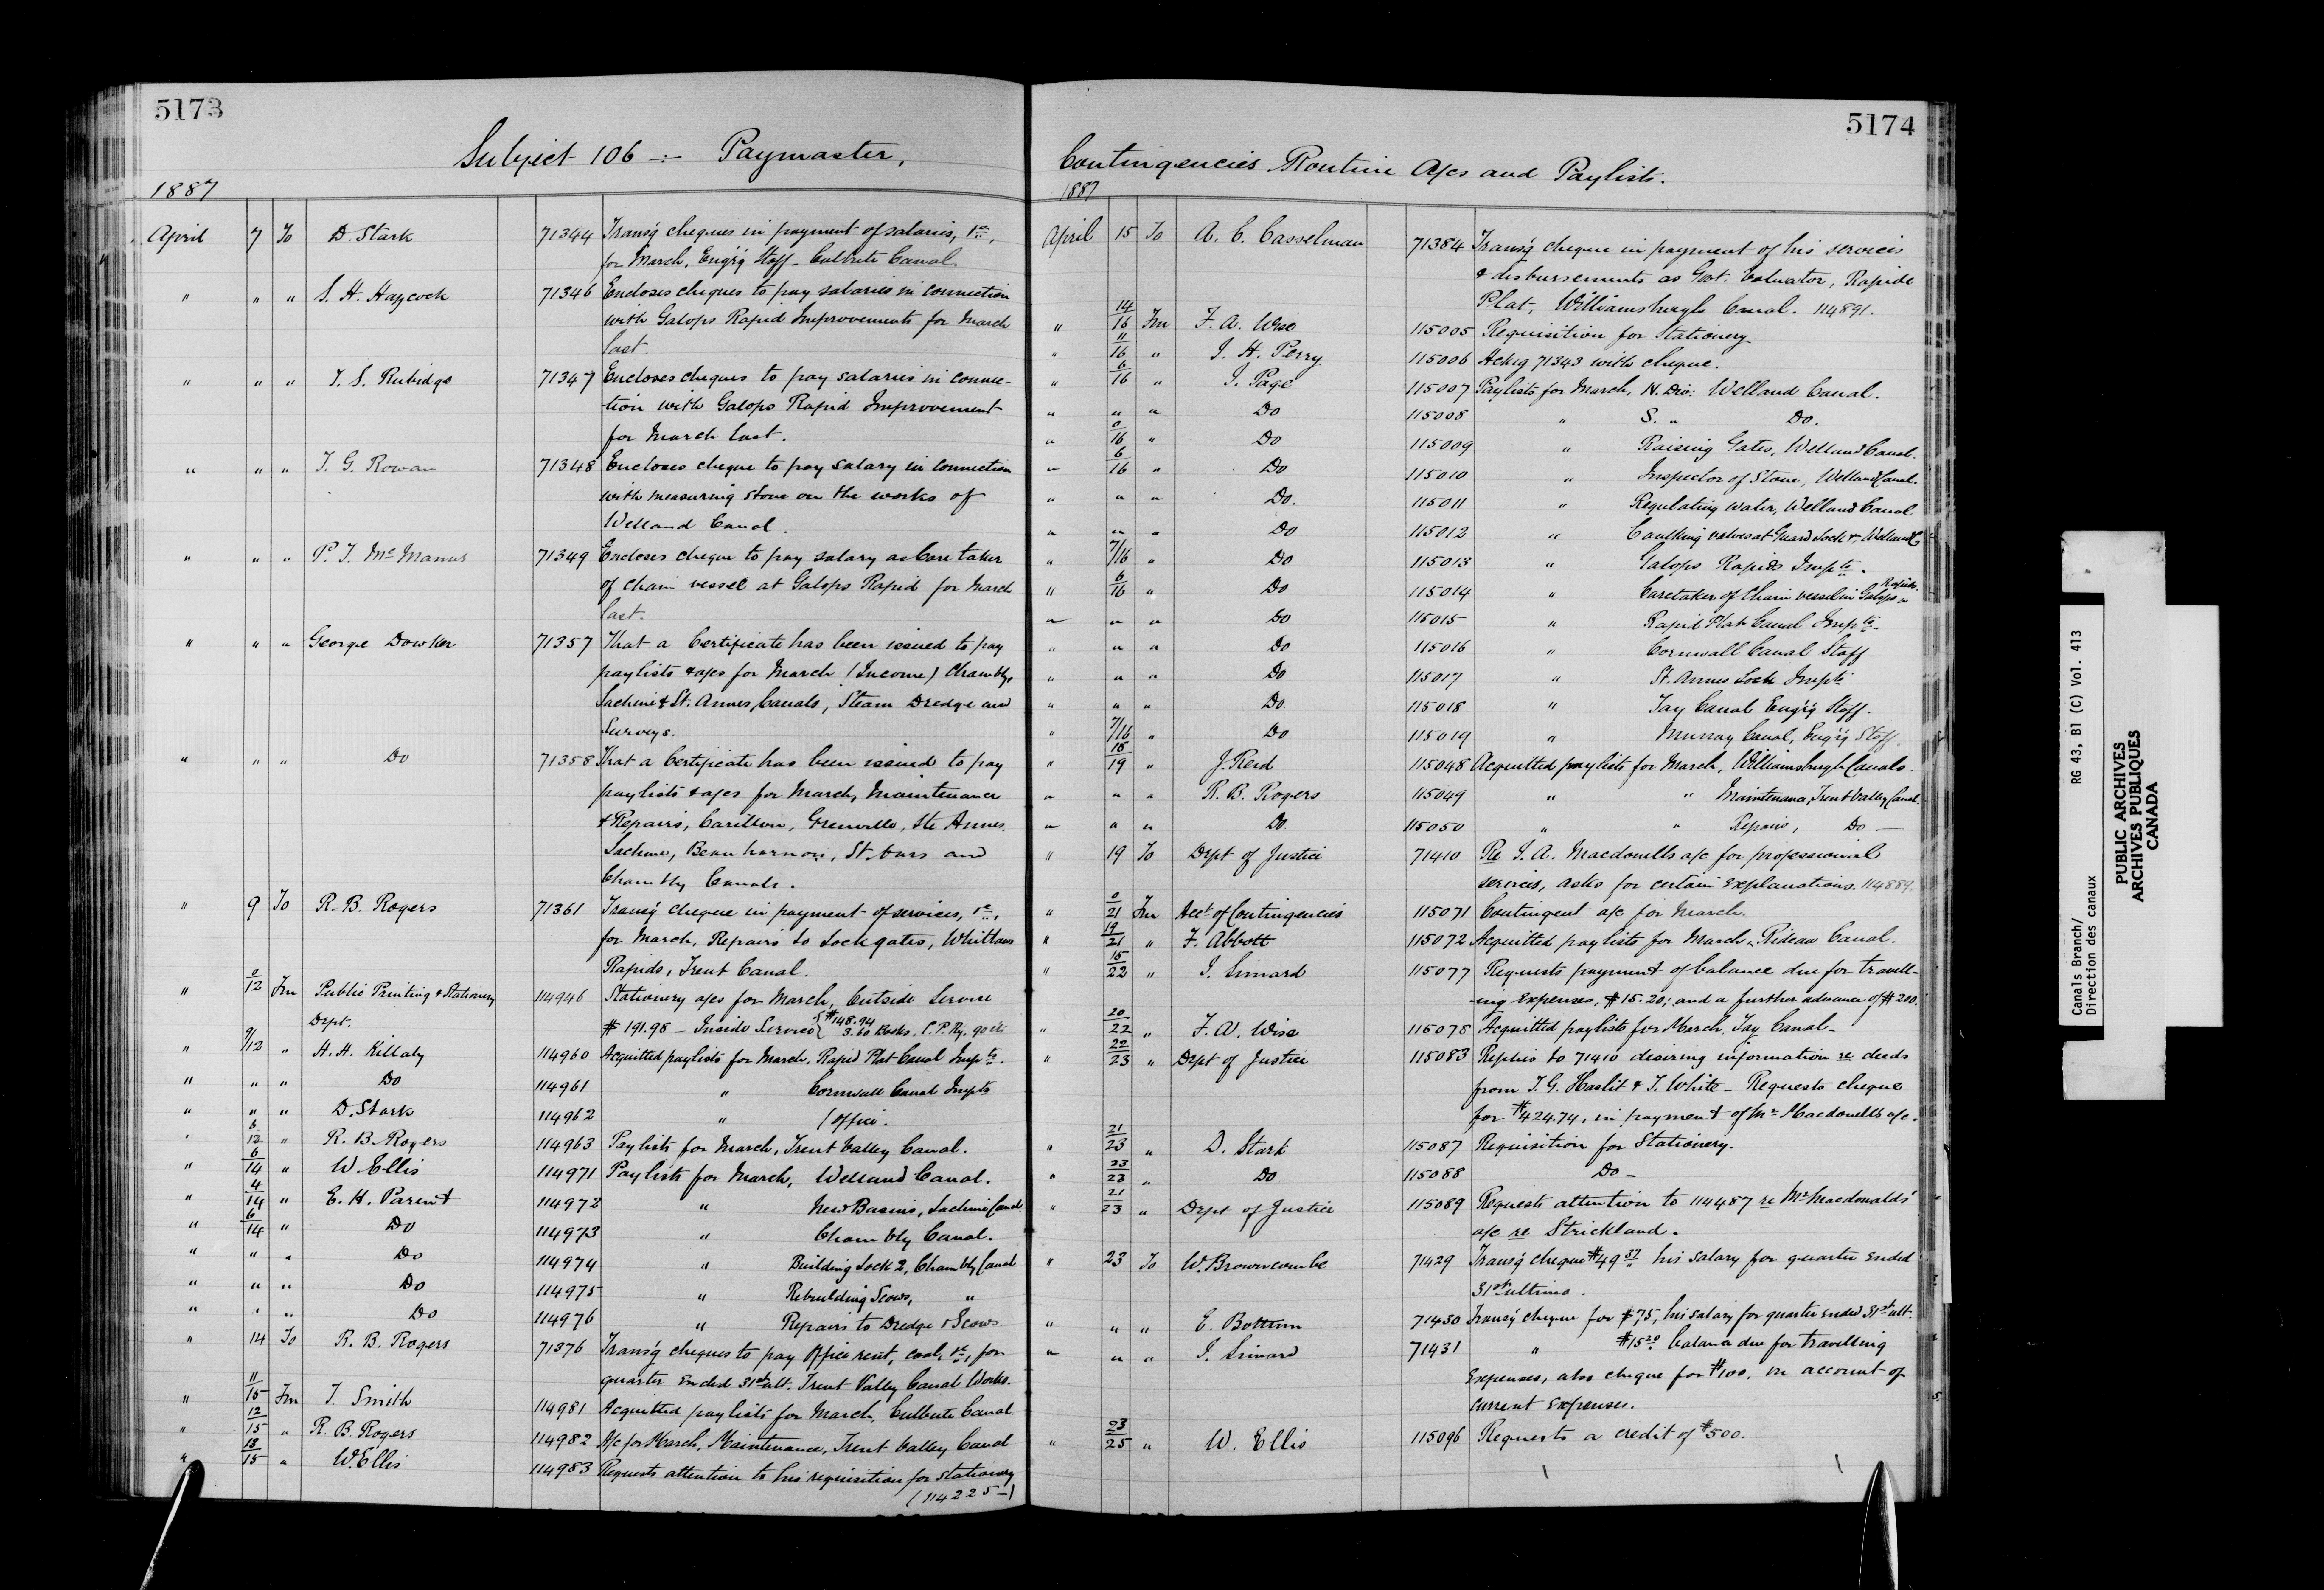 5173
Subject 106 :- Paymaster,
1887
April 7 To D. Stark 71344 Transg cheques in payment of salaries, &c.,
for March, Eng'g Staff - Culbute Canal.
" " " S. H. Haycock 71346 Encloses cheques to pay salaries in connection
with Galops Rapid Improvements for March
last.
" " " T. S. Rubidge 71347 Encloses cheques to pay salaries in connec-
tion with Galops Rapid Improvement
for March last.
" " " T. G. Rowan 71348 Encloses cheque to pay salary in connection
with measuring stone on the works of
Welland Canal.
" " " P. J. McManus 71349 Encloses cheque to pay salary as Care taker
of chain vessel at Galops Rapid for March
last.
" " " George Dowker 71357 That a Certificate has been issued to pay
paylists & a/cs for March (Income) Chambly,
Lachine & St. Annes, Canals, Steam Dredge and
Surveys.
" " " Do 71358 That a Certificate has been issued to pay
paylists & a/cs for March, Maintenance
& Repairs, Carillon, Grenville, Ste Annes,
Lachine, Beauharnois, St. Ours and
Chambly Canals.
" 9 To R. B. Rogers 71361 Transg cheque in payment of services, &c.,
for March, Repairs to Lock gates, Whitlaws
Rapids, Trent Canal.
" 0/12 Fm Public Printing & Stationery 114946 Stationery a/cs for March, Outside Service
Dept. $191.98 - Inside Service { $148.94
3.60 Books, C. P. Ry. 90 cts
" 9/12 " H. H. Killaly 114960 Acquitted paylists for March, Rapid Plat Canal Impts.
" " " Do 114961 " Cornwall Canal Impts
" " " D. Stark 114962 " (Office.
" 8/12 " R. B. Rogers 114963 Paylists for March, Trent Valley Canal.
" 6/14 " W. Ellis 114971 Paylists for March, Welland Canal.
" 4/14 " E. H. Parent 114972 " New Basins, Lachine Canal
" 6/14 " Do 114973 " Chambly Canal.
" " " Do 114974 " Building Lock 2, Chambly Canal
" " " Do 114975 " Rebuilding Scows, "
" " " Do 114976 " Repairs to Dredge & Scows
" 14 To R. B. Rogers 71376 Transg cheques to pay office rent, coal, &c., for
quarter ended 31st ult. Trent Valley Canal Works.
" 11/15 Fm T. Smith 114981 Acquitted paylists for March, Culbute Canal
" 12/15 " R. B. Rogers 114982 A/c for March, Maintenance, Trent Valley Canal
" 13/15 " W. Ellis 114983 Requests attention to his requisition for stationery
(114225-)
5174
Contingencies Routine A/cs and Paylists.
1887
April 15 To A. C. Casselman 71384 Transg cheque in payment of his services
& disbursements as Govt. Valuator, Rapide
Plat, Williamsburgh Canal. 114891.
" 14/16 Fm F. A. Wise 115005 Requisition for Stationery.
" 11/16 " J. H. Perry 115006 Ackg 71343 with cheque.
" 6/16 " J. Page 115007 Paylists for March, N. Div: Welland Canal.
" " " Do 115008 " S. " Do.
" 0/16 " Do 115009 " Raising Gates, Welland Canal.
" 6/16 " Do 115010 " Inspector of Stone, Welland Canal.
" " " Do. 115011 " Regulating water, Welland Canal
" " " Do 115012 " Caulking valves at Guard Lock &, Welland C
" 7/16 " Do 115013 " Galops Rapids Impts.
" 6/16 " Do 115014 " Caretaker of Chain vessel in Galops Rapids.
" " " Do 115015 " Rapid Plat Canal Impts
" " " Do 115016 " Cornwall Canal Staff
" " " Do 115017 " St. Annes Lock Impts
" " " Do 115018 " Tay Canal Eng'g Staff.
" 7/16 " Do 115019 " Murray Canal, Eng'g Staff.
" 18/19 " J. Reid 115048 Acquitted paylists for March, Williamsburgh Canals.
" " " R. B. Rogers 115049 " " Maintenance, Trent Valley Canal.
" " " Do. 115050 " " Repairs, Do -
" 19 To Dept of Justice 71410 Re J. A. Macdonells a/c for professional
services, asks for certain explanations. 114889.
" 0/21 Fm Acct of Contingencies 115071 Contingent a/c for March.
" 19/21 " F. Abbott 115072 Acquitted paylists for March, Rideau Canal.
" 15/22 " J. Simard 115077 Requests payment of balance due for travell-
ing expenses, $15.20; and a further advance of $200.
" 20/22 " F. A. Wise 115078 Acquitted paylists for March, Tay Canal-
" 22/23 " Dept of Justice 115083 Replies to 71410 desiring information re deeds
from T. G. Haslit & T. White - Requests cheque
for $424.74, in payment of Mr Macdonell's a/c.
" 21/23 " D. Stark 115087 Requisition for Stationery.
" 23/23 " Do 115088 Do -
" 21/23 " Dept of Justice 115089 Requests attention to 114487 re Mr Macdonalds'
a/c re Strickland.
" 23 To W. Browncombe 71429 Transg cheque $49.57 his salary for quarter ended
31st ultimo.
" " " E. Bottum 71430 Transg cheque for $75, his salary for quarter ended 31st ult.
" " " J. Simard 71431 " $15.20 balance due for travelling
expenses, also cheque for $100. on account of
current expenses.
" 23/25 " W. Ellis 115096 Requests a credit of $500.
Canals Branch/
Direction des canaux
RG 43, B1 (C) Vol. 413
PUBLIC ARCHIVES
ARCHIVES PUBLIQUES
CANADA